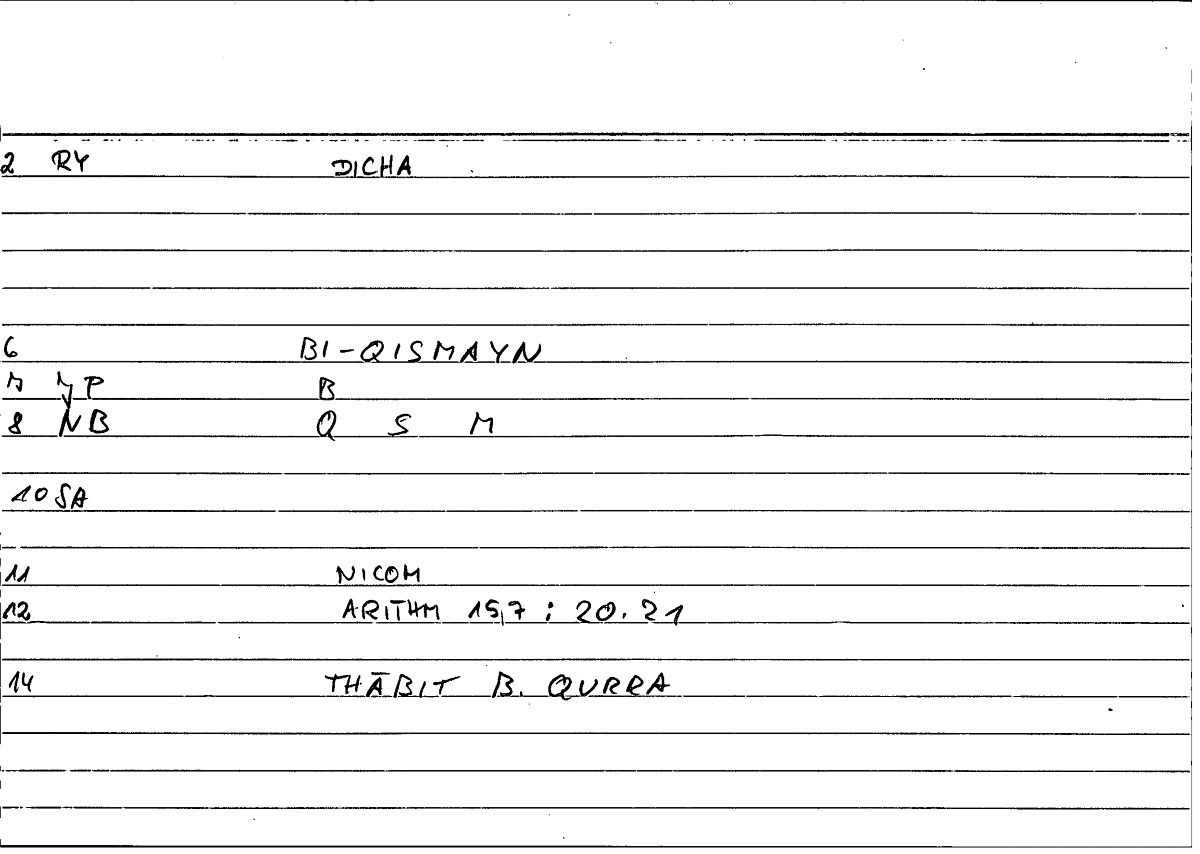 2 RY DICHA
6 BI-QISMAYN
7 YP B
8 NB Q S M
10 SA
11 NICOM
12 ARITHM 15,7 : 20.21
14 THĀBIT B. QURRA